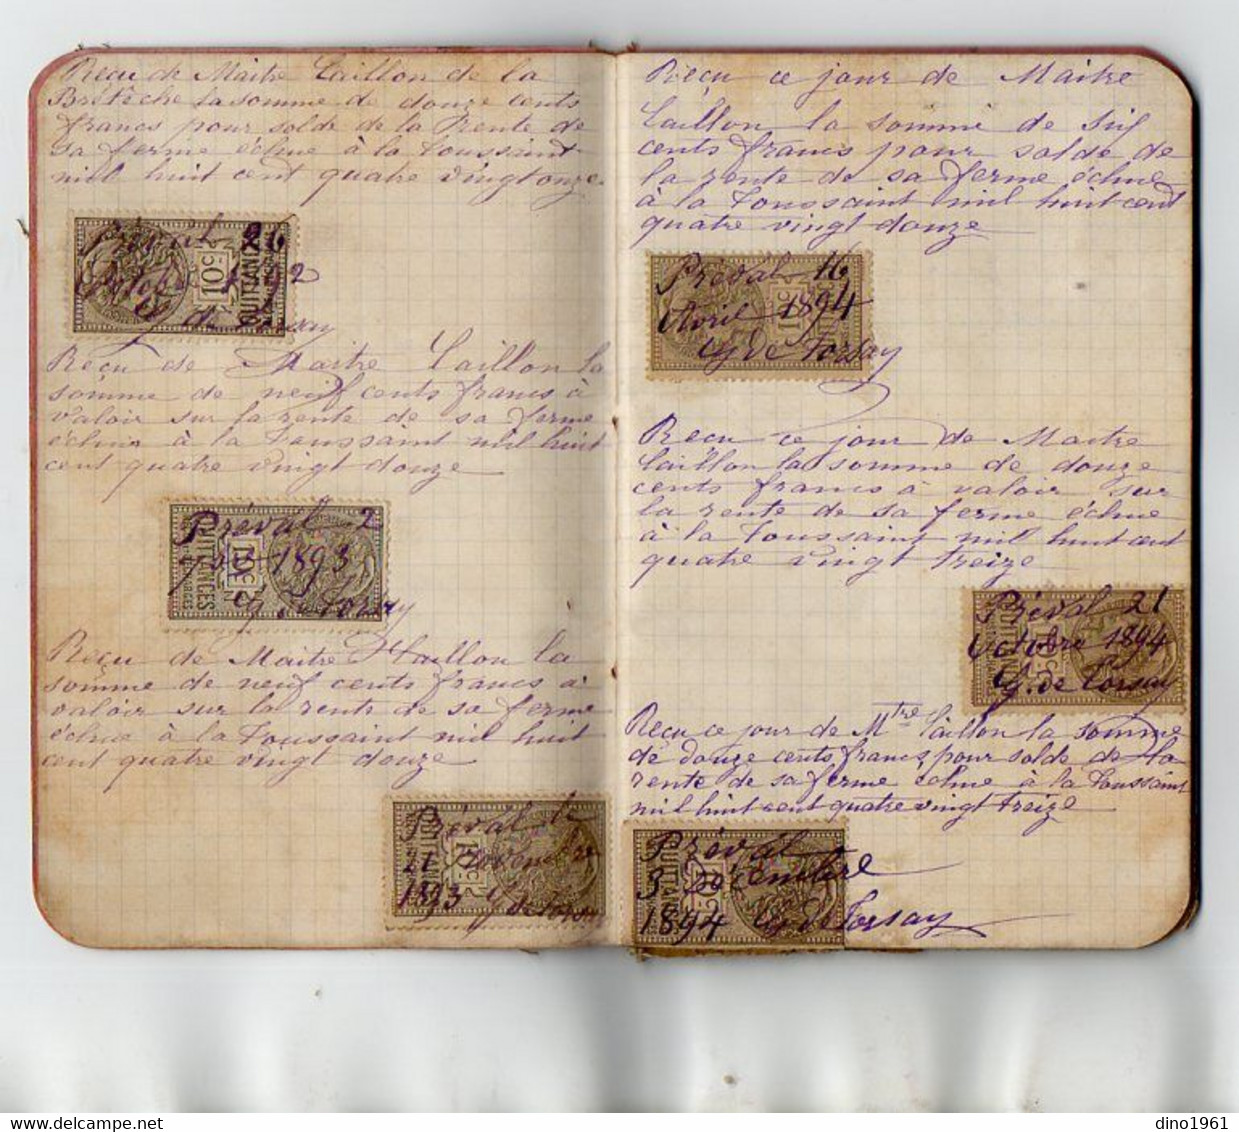 Reçu de Maitre Caillon de la
Bretèche la somme de douze cents
francs pour solde de la rente de
sa ferme échue à la Toussaint
mil huit cent quatre vingt onze.
Préval 26
Octobre 1892
10c
QUITTANCES
G de Torsay
Reçu de Maitre Caillon la
somme de neuf cents francs à
valoir sur la rente de sa ferme
échue à la Toussaint mil huit
cent quatre vingt douze
Préval 2
1893
10c
QUITTANCES
G. de Torsay
Reçu de Maitre Caillon la
somme de neuf cents francs à
valoir sur la rente de sa ferme
échue à la Toussaint mil huit
cent quatre vingt douze
Préval le
21 Novembre
1893 G de Torsay
Reçu ce jour de Maitre
Caillon la somme de six
cents francs pour solde de
la rente de sa ferme échue
à la Toussaint mil huit cent
quatre vingt douze
Préval 16
Avril 1894
G de Torsay
Reçu ce jour de Maitre
Caillon la somme de douze
cents francs à valoir sur
la rente de sa ferme échue
à la Toussaint mil huit cent
quatre vingt treize
Préval 21
Octobre 1894
G. de Torsay
Reçu ce jour de Mtre Caillon la somme
de douze cents francs pour solde de la
rente de sa ferme échue à la Toussaint
mil huit cent quatre vingt treize
Préval
3 Décembre
1894 G de Torsay
dino1961